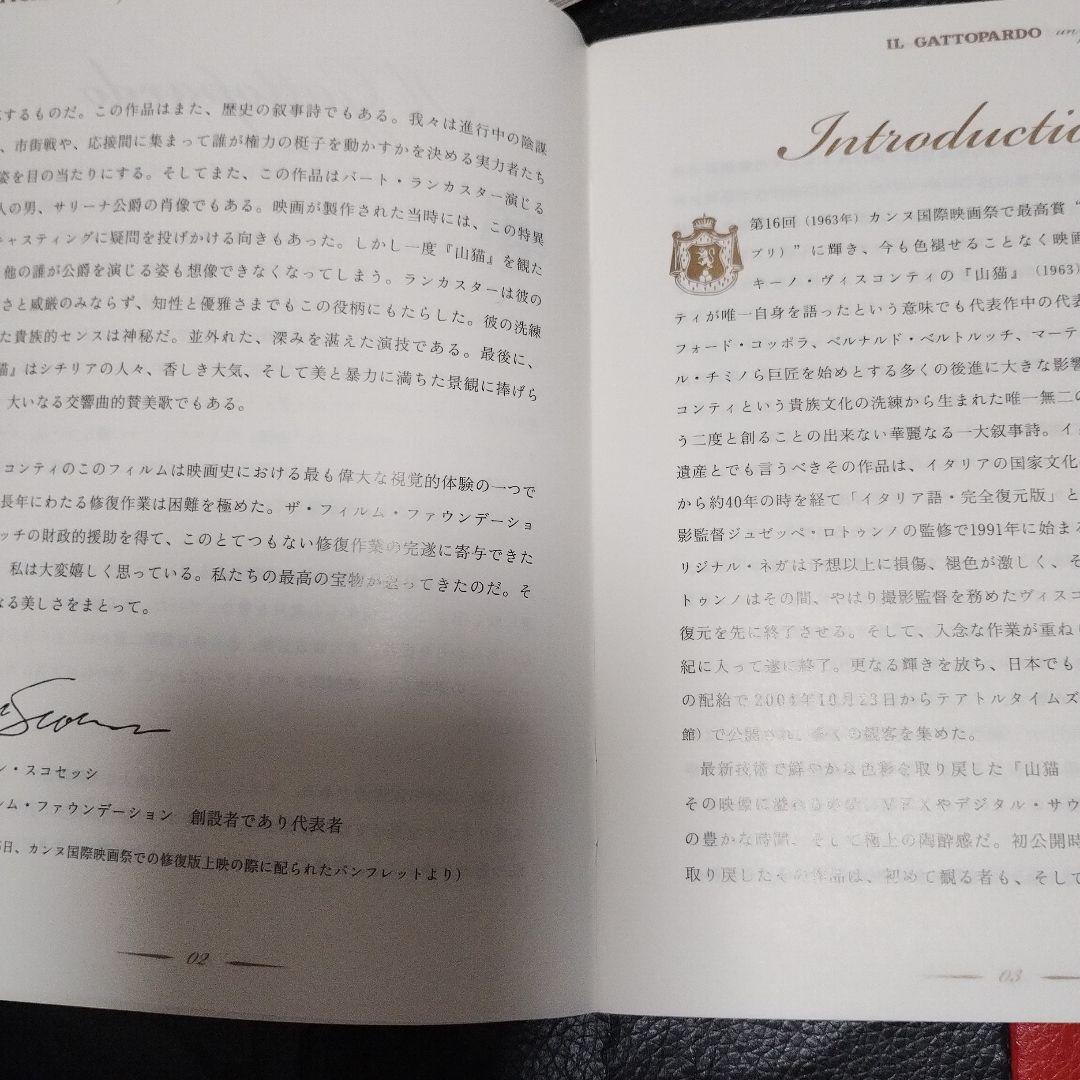 するものだ。この作品はまた、歴史の叙事詩でもある。我々は進行中の陰謀
、市街戦や、応接間に集まって誰が権力の梃子を動かすかを決める実力者たち
姿を目の当たりにする。そしてまた、この作品はバート・ランカスター演じる
人の男、サリーナ公爵の肖像でもある。映画が製作された当時には、この特異
キャスティングに疑問を投げかける向きもあった。しかし一度『山猫』を観た
他の誰が公爵を演じる姿も想像できなくなってしまう。ランカスターは彼の
さと威厳のみならず、知性と優雅さまでもこの役柄にもたらした。彼の洗練
た貴族的センスは神秘だ。並外れた、深みを湛えた演技である。最後に、
猫』はシチリアの人々、香しき大気、そして美と暴力に満ちた景観に捧げら
大いなる交響曲的賛美歌でもある。
コンティのこのフィルムは映画史における最も偉大な視覚的体験の一つで
長年にわたる修復作業は困難を極めた。ザ・フィルム・ファウンデーショ
ッチの財政的援助を得て、このとてつもない修復作業の完遂に寄与できた
、私は大変嬉しく思っている。私たちの最高の宝物が還ってきたのだ。そ
なる美しさをまとって。
ン・スコセッシ
ルム・ファウンデーション 創設者であり代表者
5日、カンヌ国際映画祭での修復版上映の際に配られたパンフレットより）
02
IL GATTOPARDO un
Introductio
第16回（1963年）カンヌ国際映画祭で最高賞“
プリ）”に輝き、今も色褪せることなく映画
キーノ・ヴィスコンティの『山猫』（1963）
ティが唯一自身を語ったという意味でも代表作中の代表
フォード・コッポラ、ベルナルド・ベルトルッチ、マーテ
ル・チミノら巨匠を始めとする多くの後進に大きな影響
コンティという貴族文化の洗練から生まれた唯一無二の
う二度と創ることの出来ない華麗なる一大叙事詩。イタ
遺産とでも言うべきその作品は、イタリアの国家文化
から約40年の時を経て「イタリア語・完全復元版」と
影監督ジュゼッペ・ロトゥンノの監修で1991年に始まる
リジナル・ネガは予想以上に損傷、褪色が激しく、そ
トゥンノはその間、やはり撮影監督を務めたヴィスコ
復元を先に終了させる。そして、入念な作業が重ね
紀に入って遂に終了。更なる輝きを放ち、日本でも
の配給で2004年10月23日からテアトルタイムズ
館）で公開され、多くの観客を集めた。
最新技術で鮮やかな色彩を取り戻した『山猫
その映像に溢れる VFXやデジタル・サウ
の豊かな時間、そして極上の陶酔感だ。初公開時
取り戻したその作品は、初めて観る者も、そして
03